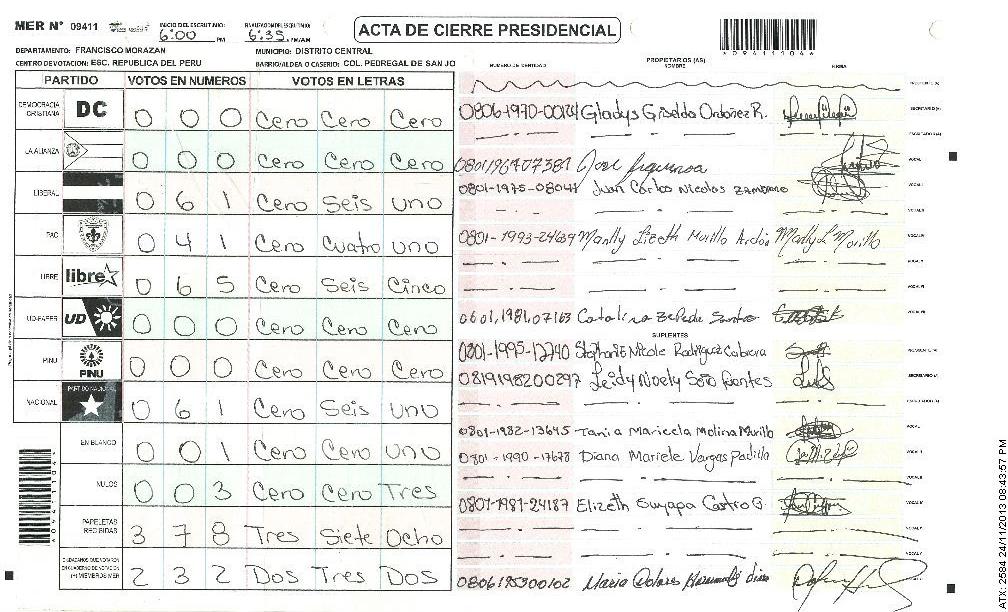 MER N° 09411 INICIO DEL ESCRUTINIO: 6:00 PM FINALIZACION DEL ESCRUTINIO: 6:35 PM/AM ACTA DE CIERRE PRESIDENCIAL
DEPARTAMENTO: FRANCISCO MORAZAN MUNICIPIO: DISTRITO CENTRAL
CENTRO DE VOTACION: ESC. REPUBLICA DEL PERU BARRIO/ALDEA O CASERIO: COL. PEDREGAL DE SAN JO
NUMERO DE IDENTIDAD PROPIETARIOS (AS) NOMBRE FIRMA
PARTIDO VOTOS EN NUMEROS VOTOS EN LETRAS
DEMOCRACIA CRISTIANA DC 0 0 0 Cero Cero Cero
LA ALIANZA 0 0 0 Cero Cero Cero
LIBERAL 0 6 1 Cero Seis uno
PAC 0 4 1 Cero Cuatro uno
LIBRE libre 0 6 5 Cero Seis Cinco
UD-FAPER UD 0 0 0 Cero Cero Cero
PINU PINU 0 0 0 Cero Cero Cero
NACIONAL PARTIDO NACIONAL 0 6 1 Cero Seis uno
EN BLANCO 0 0 1 Cero Cero uno
NULOS 0 0 3 Cero Cero Tres
PAPELETAS RECIBIDAS 3 7 8 Tres Siete Ocho
CIUDADANOS QUE VOTARON EN CUADERNO DE VOTACION (+) MIEMBROS MER 2 3 2 Dos Tres Dos
0806-1970-00124 Gladys Griselda Ordoñez R. SECRETARIO (A)
0801196407381 Jose Figueroa VOCAL
0801-1975-08041 Juan Carlos Nicolas Zambrano VOCAL I
0801-1993-24639 Marlly Lizeth Murillo Ardón Marlly L Murillo VOCAL IV
0601,1981,07163 Catalina Zepeda Santos VOCAL VII
SUPLENTES
0801-1995-12740 Stephanie Nicole Rodriguez Cabrera PRESIDENTE (A)
0819198200297 Leidy Noely Soto Fuentes SECRETARIO (A)
0801-1982-13645 Tania Maricela Molina Murillo VOCAL
0801-1990-17678 Diana Mariele Vargas Padilla VOCAL I
0801-1981-24187 Elizeth Suyapa Castro G VOCAL IV
0806195300102 Maria Dolores
0941110 4
ATX: 2584 24/11/2013 08:43:57 PM